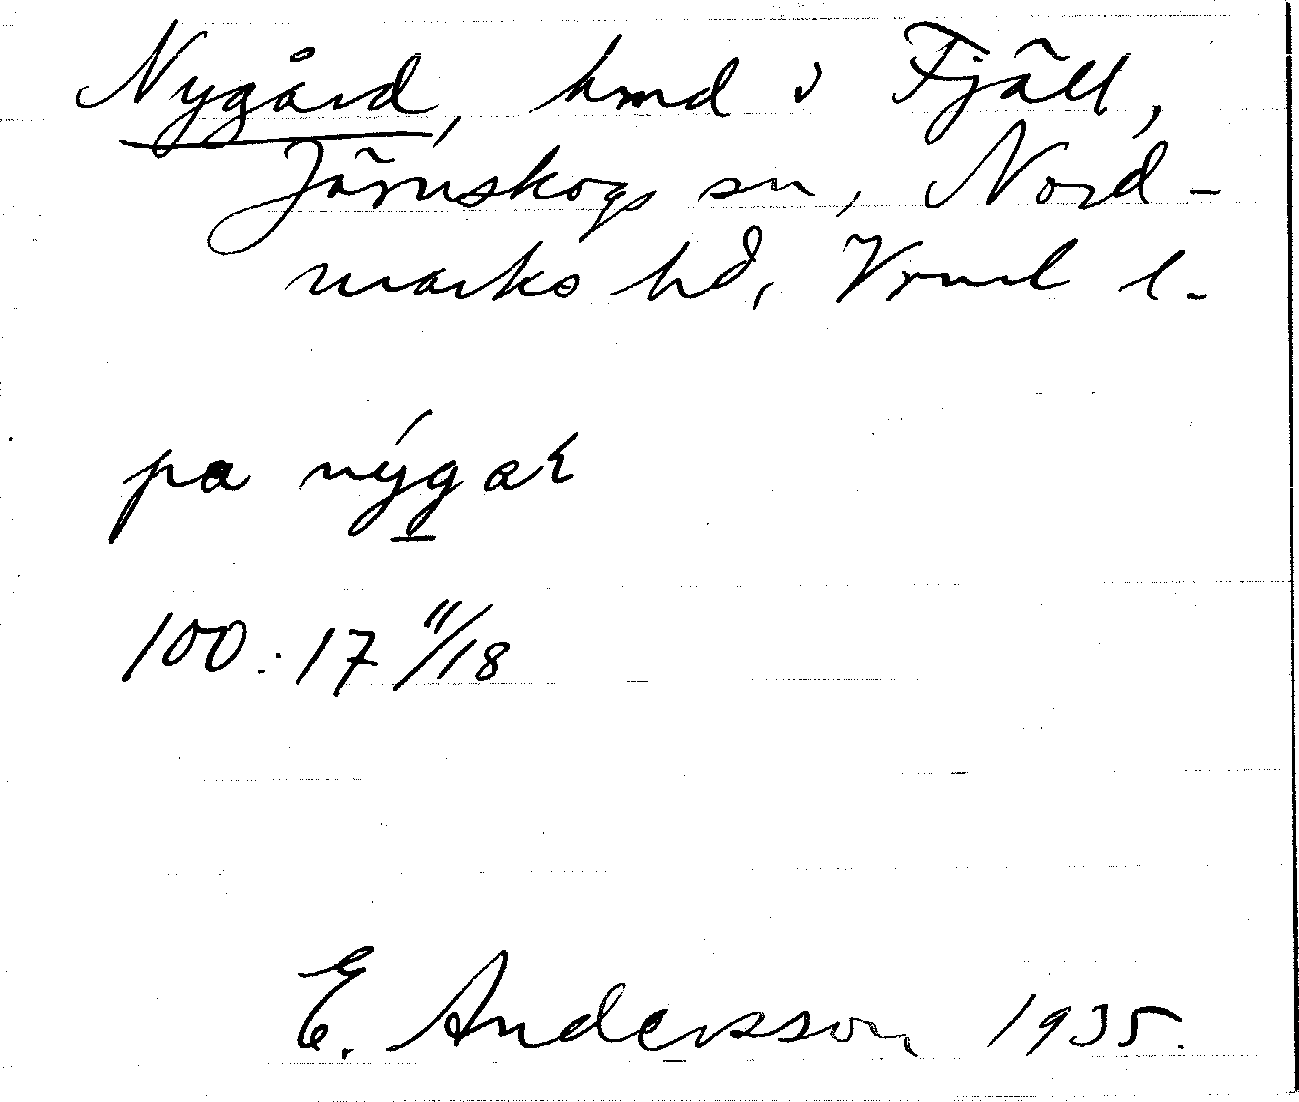 Nygård, hmd i Fjäll,
Järnskogs sn, Nord-
marks hd, Vrml l.
pa nýgaʈ
100:17 11/18
E. Andersson 1935.